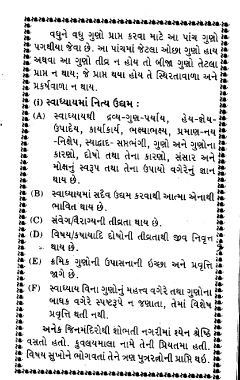 વધુને વધુ ગુણો પ્રાપ્ત કરવા માટે આ પાંચ ગુણો
પગથીયા જેવા છે. આ પાંચમાં જેટલા ઓછા ગુણો હાય
અથવા આ ગુણો તીવ્ર ન હોય તો બીજા ગુણો તેટલા
પ્રાપ્ત ન થાય; જે પ્રાપ્ત થયા હોય તે સ્થિરતાવાળા અને
પ્રકર્ષવાળા ન થાય.
(i) સ્વાધ્યાયમાં નિત્ય ઉદ્યમ :
(A) સ્વાધ્યાયથી દ્રવ્ય-ગુણ-પર્યાય, હેય-જ્ઞેય-
ઉપાદેય, કાર્યાકાર્ય, ભક્ષ્યાભક્ષ્ય, પ્રમાણ-નય
-નિક્ષેપ, સ્યાદ્વાદ-સપ્તભંગી, ગુણો અને ગુણોના
કારણો, દોષો તથા તેના કારણો, સંસાર અને
મોક્ષનું સ્વરૂપ તથા તેના ઉપાયો વગેરેનું જ્ઞાન
થાય છે.
(B) સ્વાધ્યાયમાં સદૈવ ઉદ્યમ કરવાથી આત્મા એનાથી
ભાવિત થાય છે.
(C) સંવેગ/વૈરાગ્યની તીવ્રતા થાય છે.
(D) વિષય/કષાયાદિ દોષોની તીવ્રતાથી જીવ નિવૃત્ત
થાય છે.
(E) ક્રમિક ગુણોની ઉપાસનાની ઇચ્છા અને પ્રવૃત્તિ
જાગે છે.
(F) સ્વાધ્યાય વિના ગુણોનું મહત્ત્વ વગેરે તથા ગુણોના
બાધક વગેરે સ્પષ્ટરૂપે ન જણાતા, તેમાં વિશેષ
પ્રવૃત્તિ થતી નથી.
અનેક જિનમંદિરોથી શોભતી નગરીમાં શ્યેન શ્રેષ્ઠિ
વસતો હતો. કુવલયમાલા નામે તેની પ્રિયતમા હતી.
વિષય સુખોને ભોગવતાં તેને ત્રણ પુત્રરત્નોની પ્રાપ્તિ થઇ.